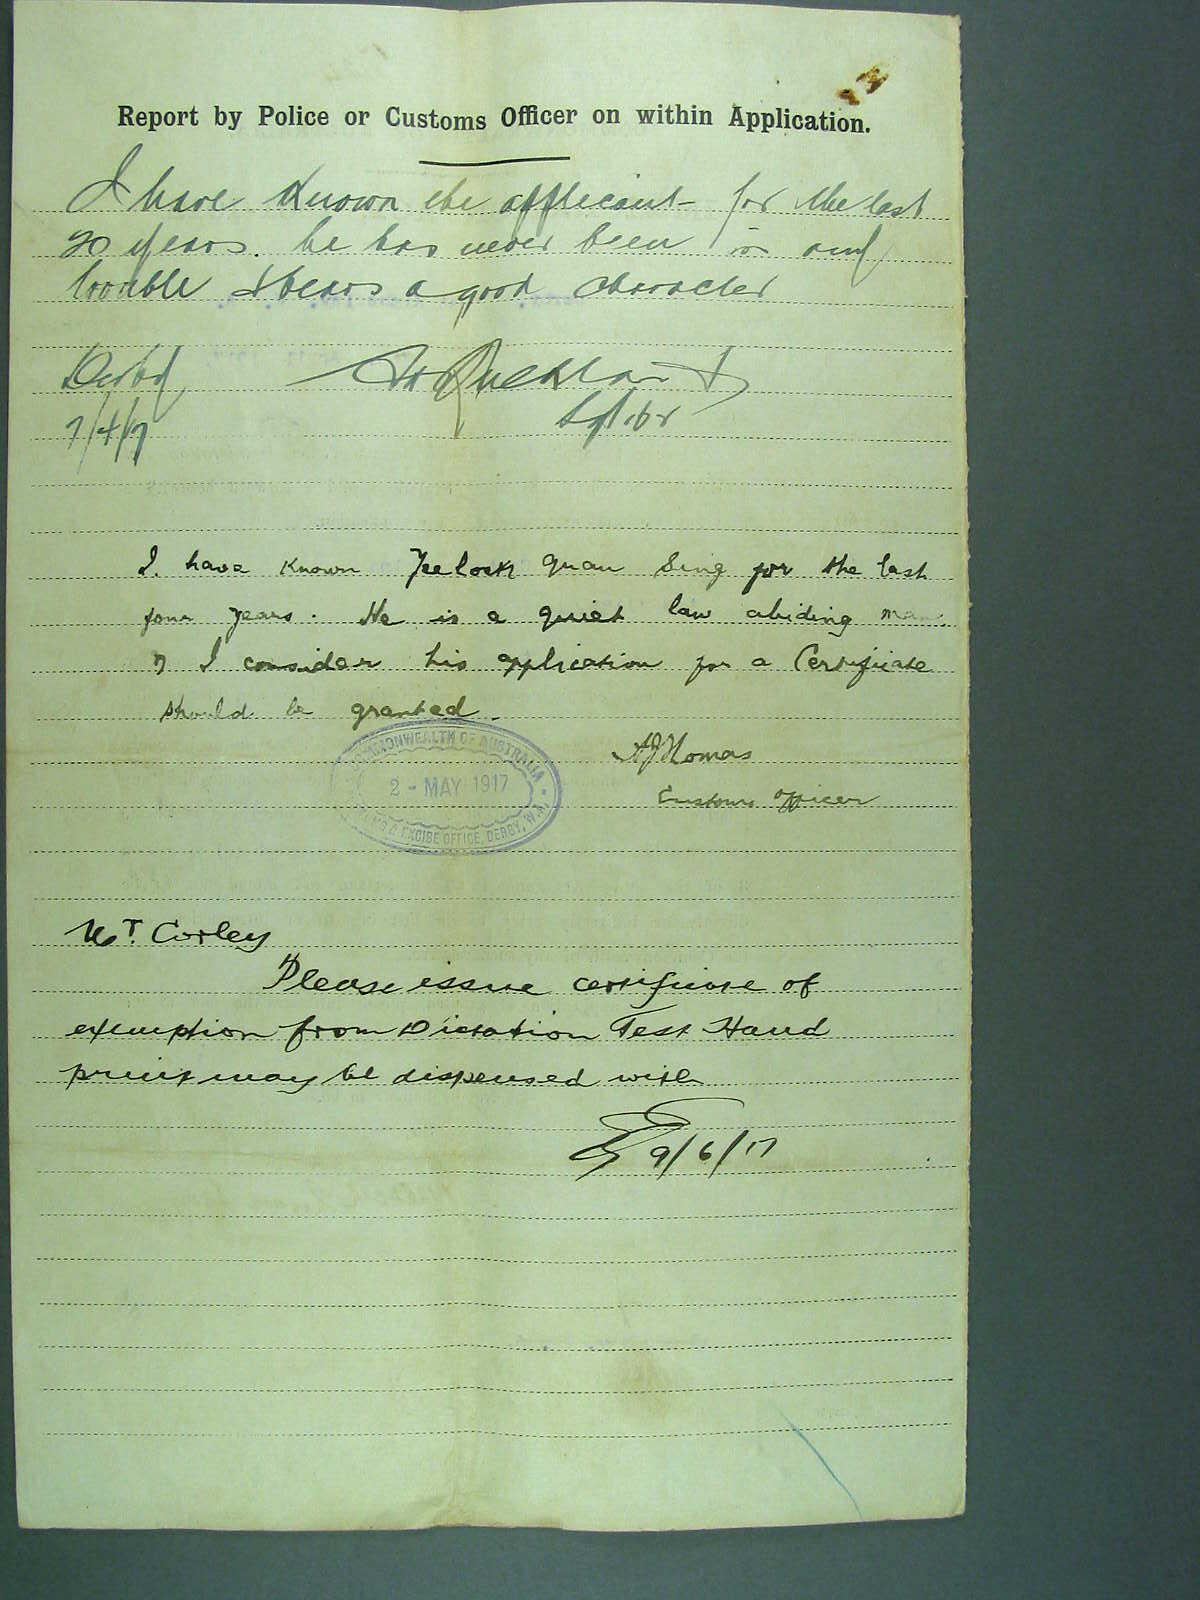 Report by Police or Customs Officer on within Application.
I have known the applicant for the last
20 years. he has never been in any
trouble & bears a good character
Derby
7/4/17
I have known Yee lock Quan Sing for the last
four years. He is a quiet law abiding man.
& I consider his application for a Certificate
should be granted.
COMMONWEALTH OF AUSTRALIA
2 - MAY 1917
& EXCISE OFFICE, DERBY, W.A.
A J Thomas
Customs Officer
Mr. Corley
Please issue certificate of
exemption from Dictation Test Hand
print may be dispensed with
9/6/17